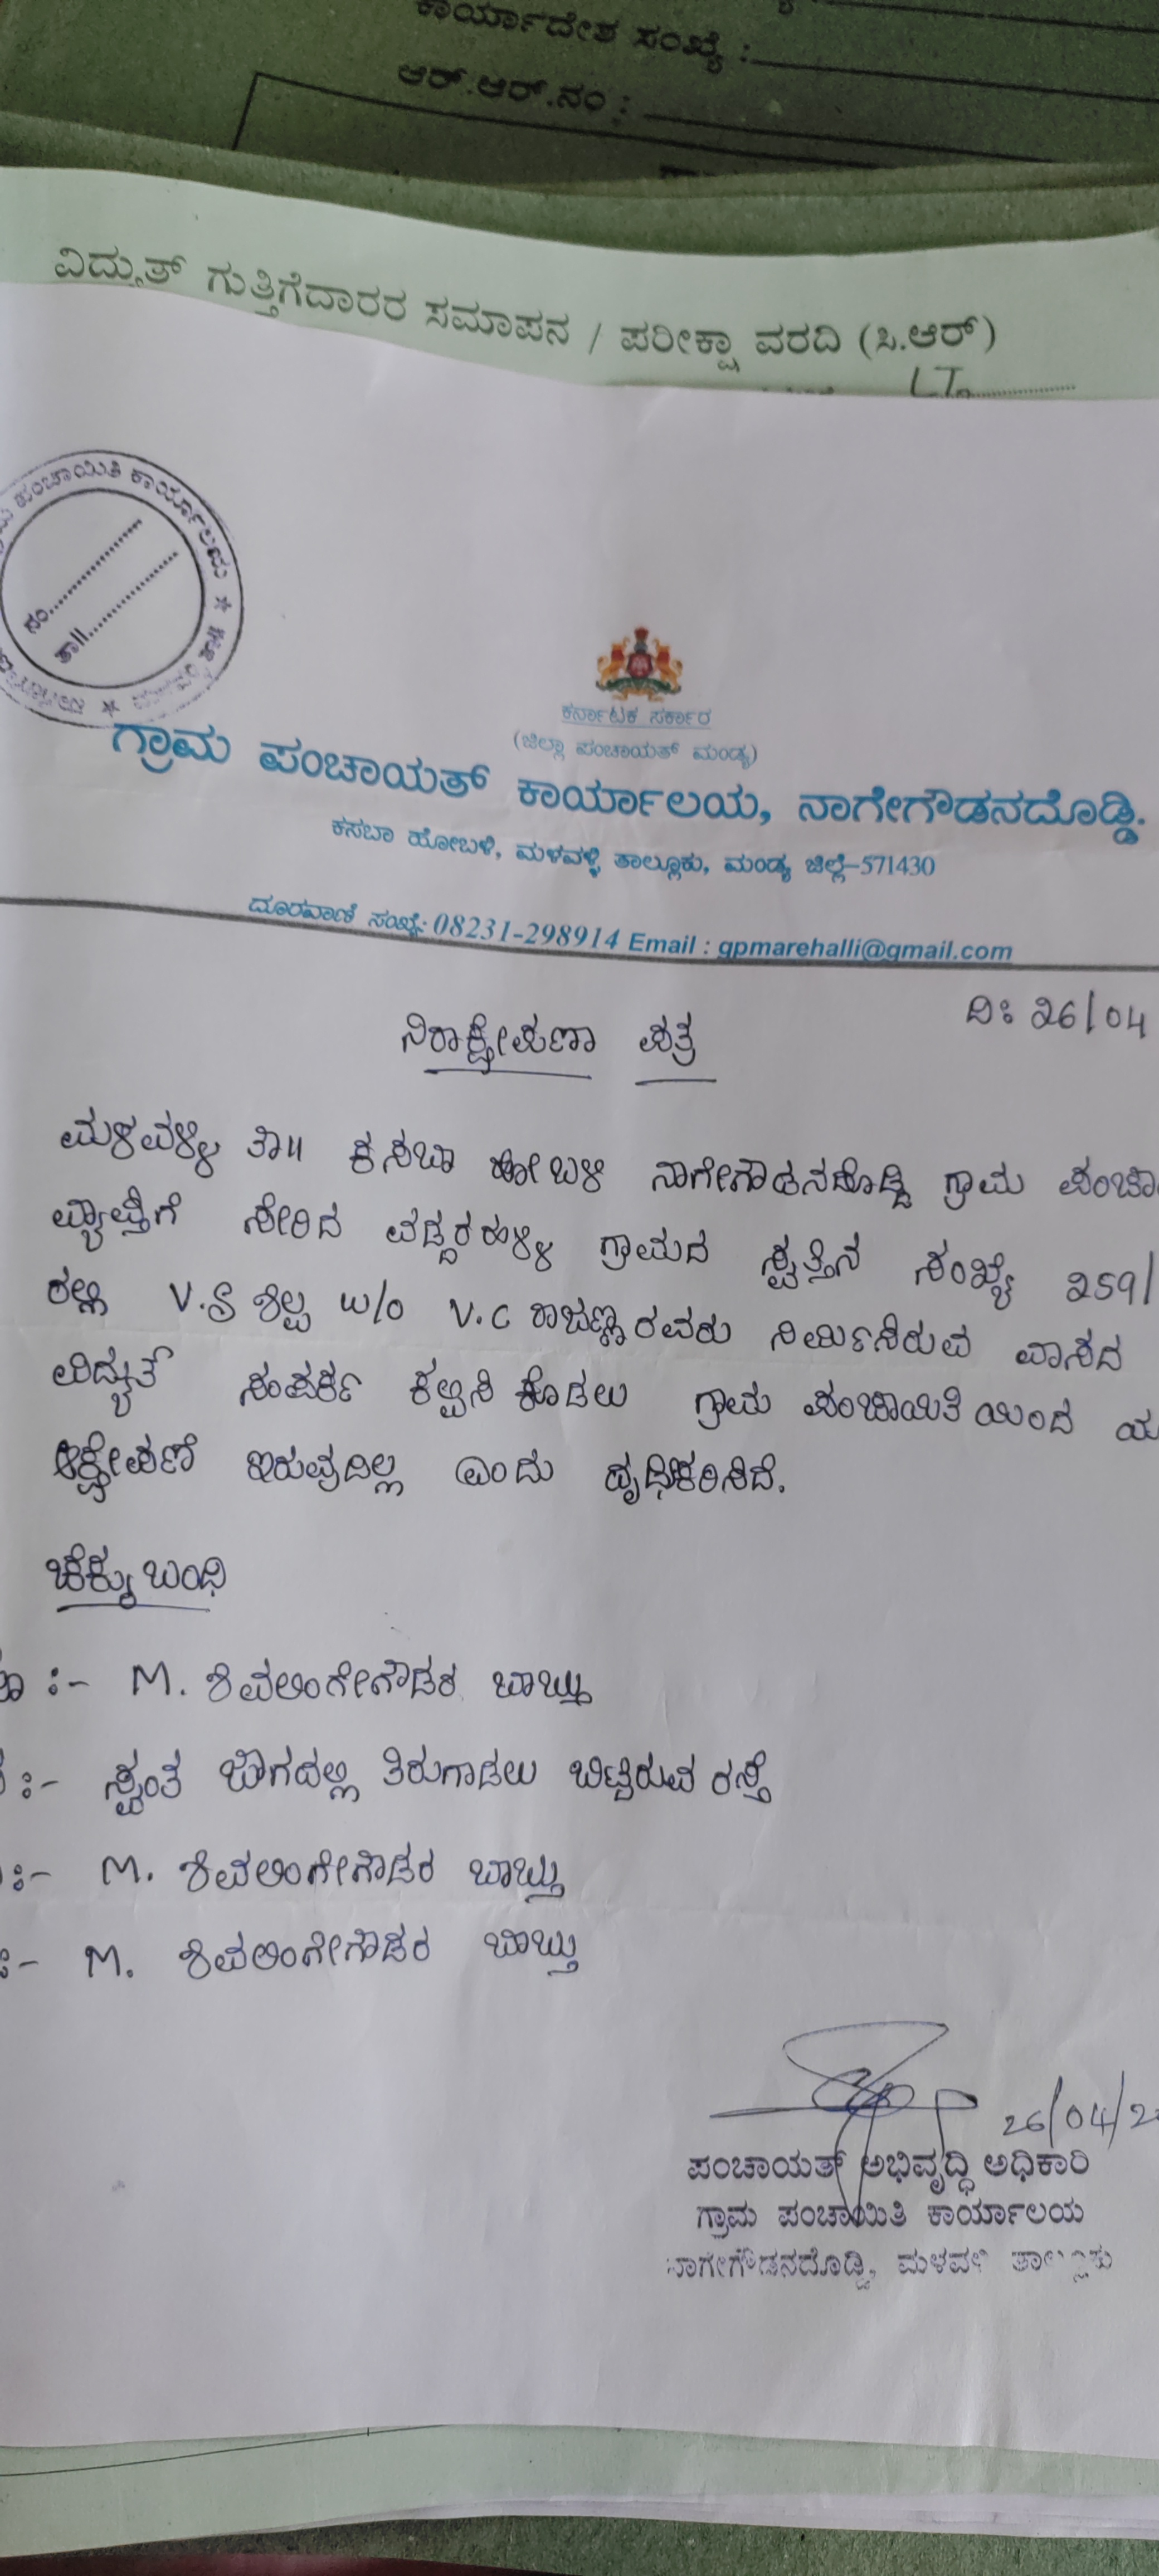 ಕಾರ್ಯಾದೇಶ ಸಂಖ್ಯೆ :
ಆರ್.ಆರ್.ನಂ :
ವಿದ್ಯುತ್ ಗುತ್ತಿಗೆದಾರರ ಸಮಾಪನ / ಪರೀಕ್ಷಾ ವರದಿ (ಸಿ.ಆರ್)
LT
ಪಂಚಾಯಿತಿ ಕಾರ್ಯಾಲಯ
ನಂ
ತಾ||
ಕರ್ನಾಟಕ ಸರ್ಕಾರ
(ಜಿಲ್ಲಾ ಪಂಚಾಯತ್ ಮಂಡ್ಯ)
ಗ್ರಾಮ ಪಂಚಾಯತ್ ಕಾರ್ಯಾಲಯ, ನಾಗೇಗೌಡನದೊಡ್ಡಿ.
ಕಸಬಾ ಹೋಬಳಿ, ಮಳವಳ್ಳಿ ತಾಲ್ಲೂಕು, ಮಂಡ್ಯ ಜಿಲ್ಲೆ-571430
ದೂರವಾಣಿ ಸಂಖ್ಯೆ: 08231-298914 Email : gpmarehalli@gmail.com
ದಿ: 26/04
ನಿರಾಕ್ಷೇಪಣಾ ಪತ್ರ
ಮಳವಳ್ಳಿ ತಾ|| ಕಸಬಾ ಹೋಬಳಿ ನಾಗೇಗೌಡನದೊಡ್ಡಿ ಗ್ರಾಮ ಪಂಚಾ
ವ್ಯಾಪ್ತಿಗೆ ಸೇರಿದ ವಡ್ಡರಹಳ್ಳಿ ಗ್ರಾಮದ ಸ್ವತ್ತಿನ ಸಂಖ್ಯೆ 259/
ರಲ್ಲಿ V.S ಶಿಲ್ಪ W/o V.C ರಾಜಣ್ಣರವರು ನಿರ್ಮಿಸಿರುವ ವಾಸದ
ವಿದ್ಯುತ್ ಸಂಪರ್ಕ ಕಲ್ಪಿಸಿ ಕೊಡಲು ಗ್ರಾಮ ಪಂಚಾಯಿತಿಯಿಂದ ಯ
ಆಕ್ಷೇಪಣೆ ಇರುವುದಿಲ್ಲ ಎಂದು ದೃಢೀಕರಿಸಿದೆ.
ಚೆಕ್ಕುಬಂಧಿ
:- M. ಶಿವಲಿಂಗೇಗೌಡರ ಬಾಬ್ತು
:- ಸ್ವಂತ ಜಾಗದಲ್ಲಿ ತಿರುಗಾಡಲು ಬಿಟ್ಟಿರುವ ರಸ್ತೆ
:- M. ಶಿವಲಿಂಗೇಗೌಡರ ಬಾಬ್ತು
:- M. ಶಿವಲಿಂಗೇಗೌಡರ ಬಾಬ್ತು
26/04/2
ಪಂಚಾಯತ್ ಅಭಿವೃದ್ಧಿ ಅಧಿಕಾರಿ
ಗ್ರಾಮ ಪಂಚಾಯಿತಿ ಕಾರ್ಯಾಲಯ
ನಾಗೇಗೌಡನದೊಡ್ಡಿ, ಮಳವಳ್ಳಿ ತಾಲ್ಲೂಕು